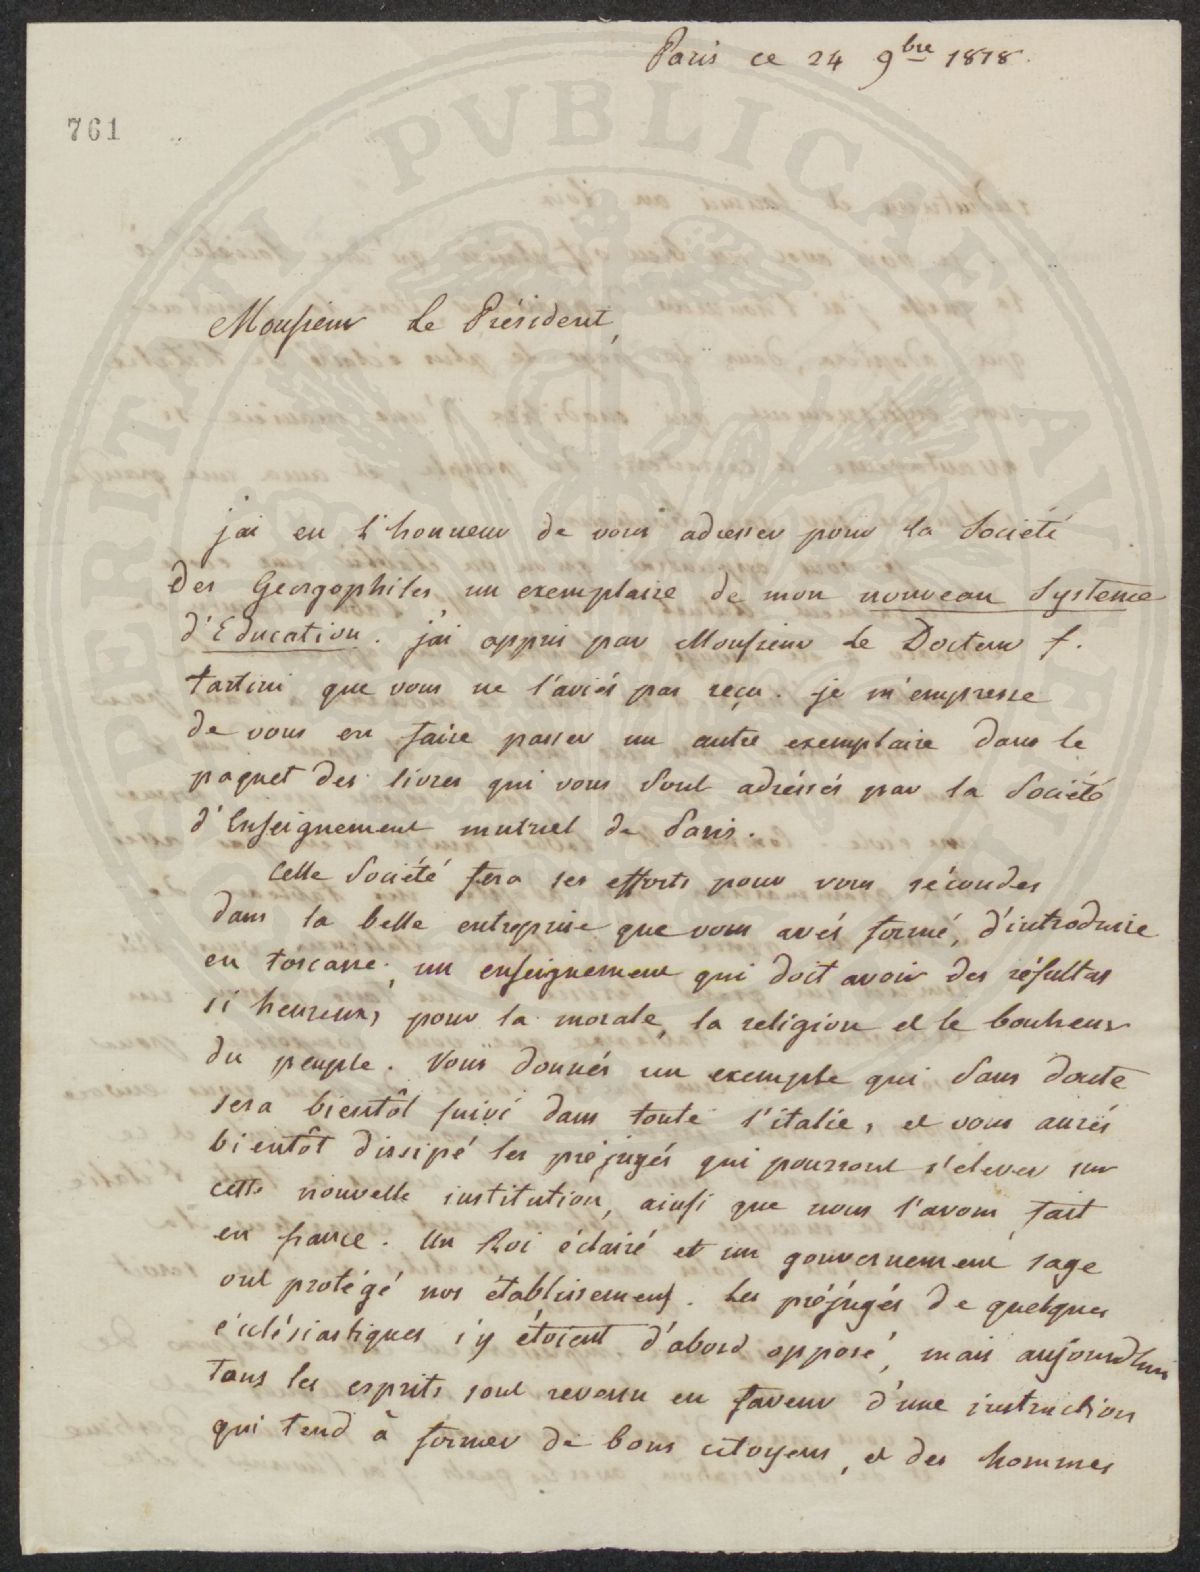 Paris ce 24 9bre 1818.
761
Monsieur Le Président,
j'ai eu l'honneur de vous adresser pour la Société
des Georgophiles un exemplaire de mon nouveau Systême
d'Education. j'ai appris par Monsieur Le Docteur f.
tartini que vous ne l'aviés pas reçu. je m'empresse
de vous en faire passer un autre exemplaire dans le
paquet des livres qui vous sont adréssés par la Société
d'Enseignement mutuel de Paris.
Cette Société fera ses efforts pour vous séconder
dans la belle entreprise que vous avés formé, d'introduire
en toscane, un enseignement qui doit avoir des résultas
si heureux, pour la morale, la religion et le bonheur
du peuple. Vous donnés un exemple qui sans doute
sera bientôt suivi dans toute l'italie, et vous aurés
bientôt dissipé les préjugés qui pourront s'elever sur
cette nouvelle institution, ainsi que nous l'avons fait
en france. Un Roi éclairé et un gouvernement sage
ont protégé nos établissemens. Les préjúgés de quelques
éclésiastiques s'y étoient d'abord opposé, mais aujourdhui
tous les esprits sont revenu en faveur d'une instruction
qui tend à former de bons citoyens, et des hommes
PERITATI PVBLICAE